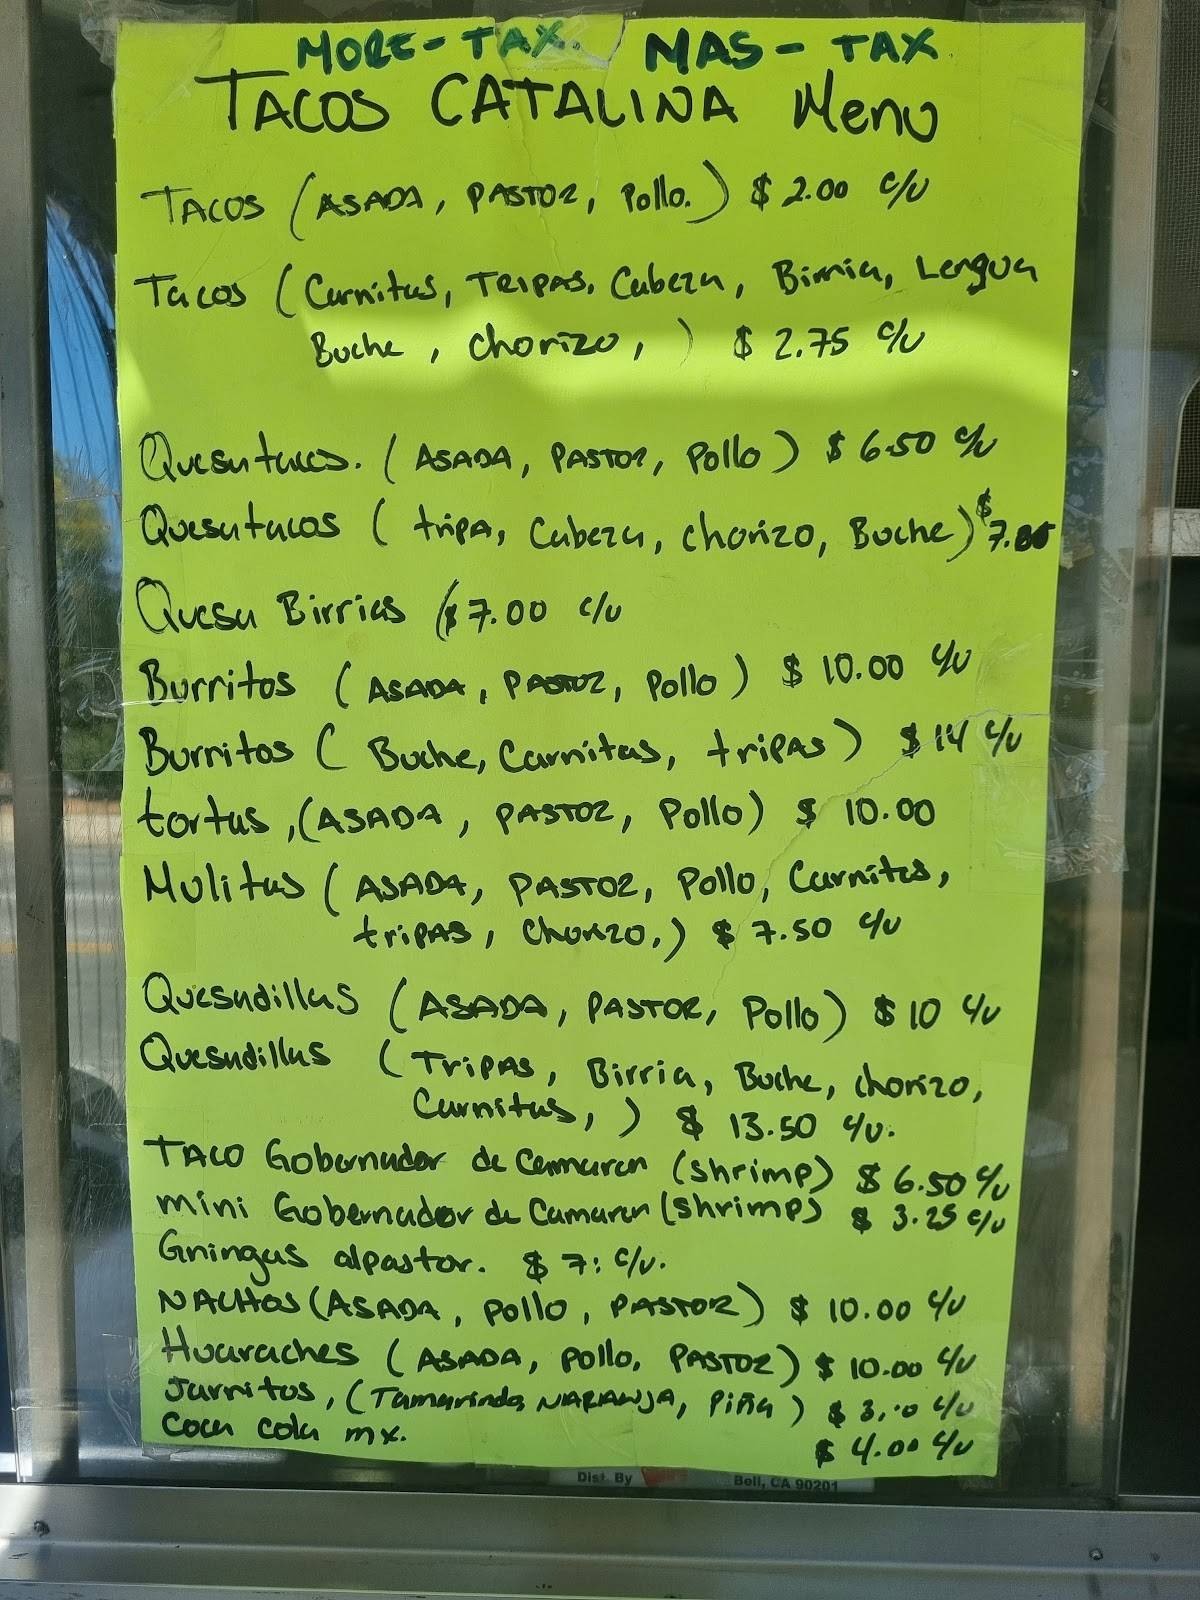 MORE-TAX. MAS-TAX
TACOS CATALINA Menu
TACOS (ASADA, PASTOR, Pollo.) $ 2.00 c/u
Tacos (Carnitas, TRIPAS, Cabeza, Birria, Lengua
Buche, chorizo, ) $ 2.75 c/u
Quesatacos. (ASADA, PASTOR, Pollo) $ 6.50 c/u
Quesatacos (tripa, Cabeza, chorizo, Buche) $
Quesa Birrias ($ 7.00 c/u
Burritos (ASADA, PASTOR, Pollo) $ 10.00 c/u
Burritos (Buche, Carnitas, tripas) $ 14 c/u
tortas, (ASADA, PASTOR, Pollo) $ 10.00
Mulitas (ASADA, PASTOR, Pollo, Carnitas,
tripAS, Chorizo,) $ 7.50 c/u
Quesadillas (ASADA, PASTOR, Pollo) $ 10 c/u
Quesadillas (TripAS, Birria, Buche, chorizo,
Carnitas, ) $ 13.50 c/u.
TACO Gobernador de Camaron (shrimp) $ 6.50 c/u
mini Gobernador de Camaron (shrimp) $ 3.25 c/u
Gringas alpastor. $ 7: c/u.
NACHOS (ASADA, pollo, PASTOR) $ 10.00 c/u
Huaraches (ASADA, pollo, PASTOR) $ 10.00 c/u
Jarritos, (Tamarindo, NARANJA, Piña) $ 3.00 c/u
Coca cola mx. $ 4.00 c/u
Dist. By Bell, CA 90201